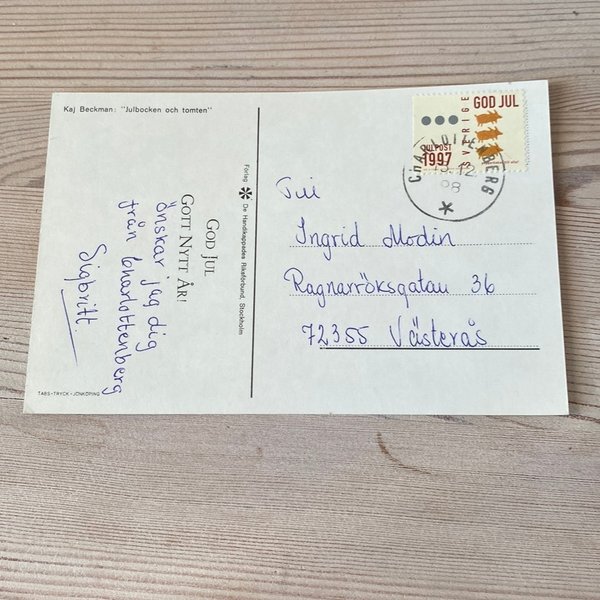 Kaj Beckman: "Julbocken och tomten"
GOD JUL
GOTT NYTT ÅR!
önskar jag dig
från Charlottenberg
Sigbritt
TABS-TRYCK-JÖNKÖPING
Förlag De Handikappades Riksförbund, Stockholm
GOD JUL
SVERIGE
JULPOST
1997
CHARLOTTENBERG
Till
Ingrid Modin
Ragnarröksgatan 36
72355 Västerås